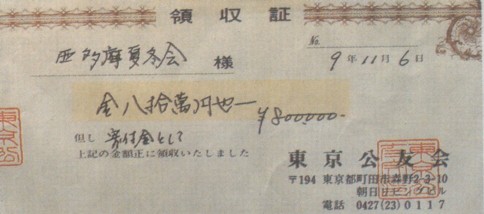 領収証
No.
西多摩夏冬会 様
9年11月6日
金八拾萬円也一 ¥800,000-
但し 寄付金として
上記の金額正に領収いたしました
東京公友会
〒194 東京都町田市森野2-3-10
朝日リビングビル
電話 0427(23)0117